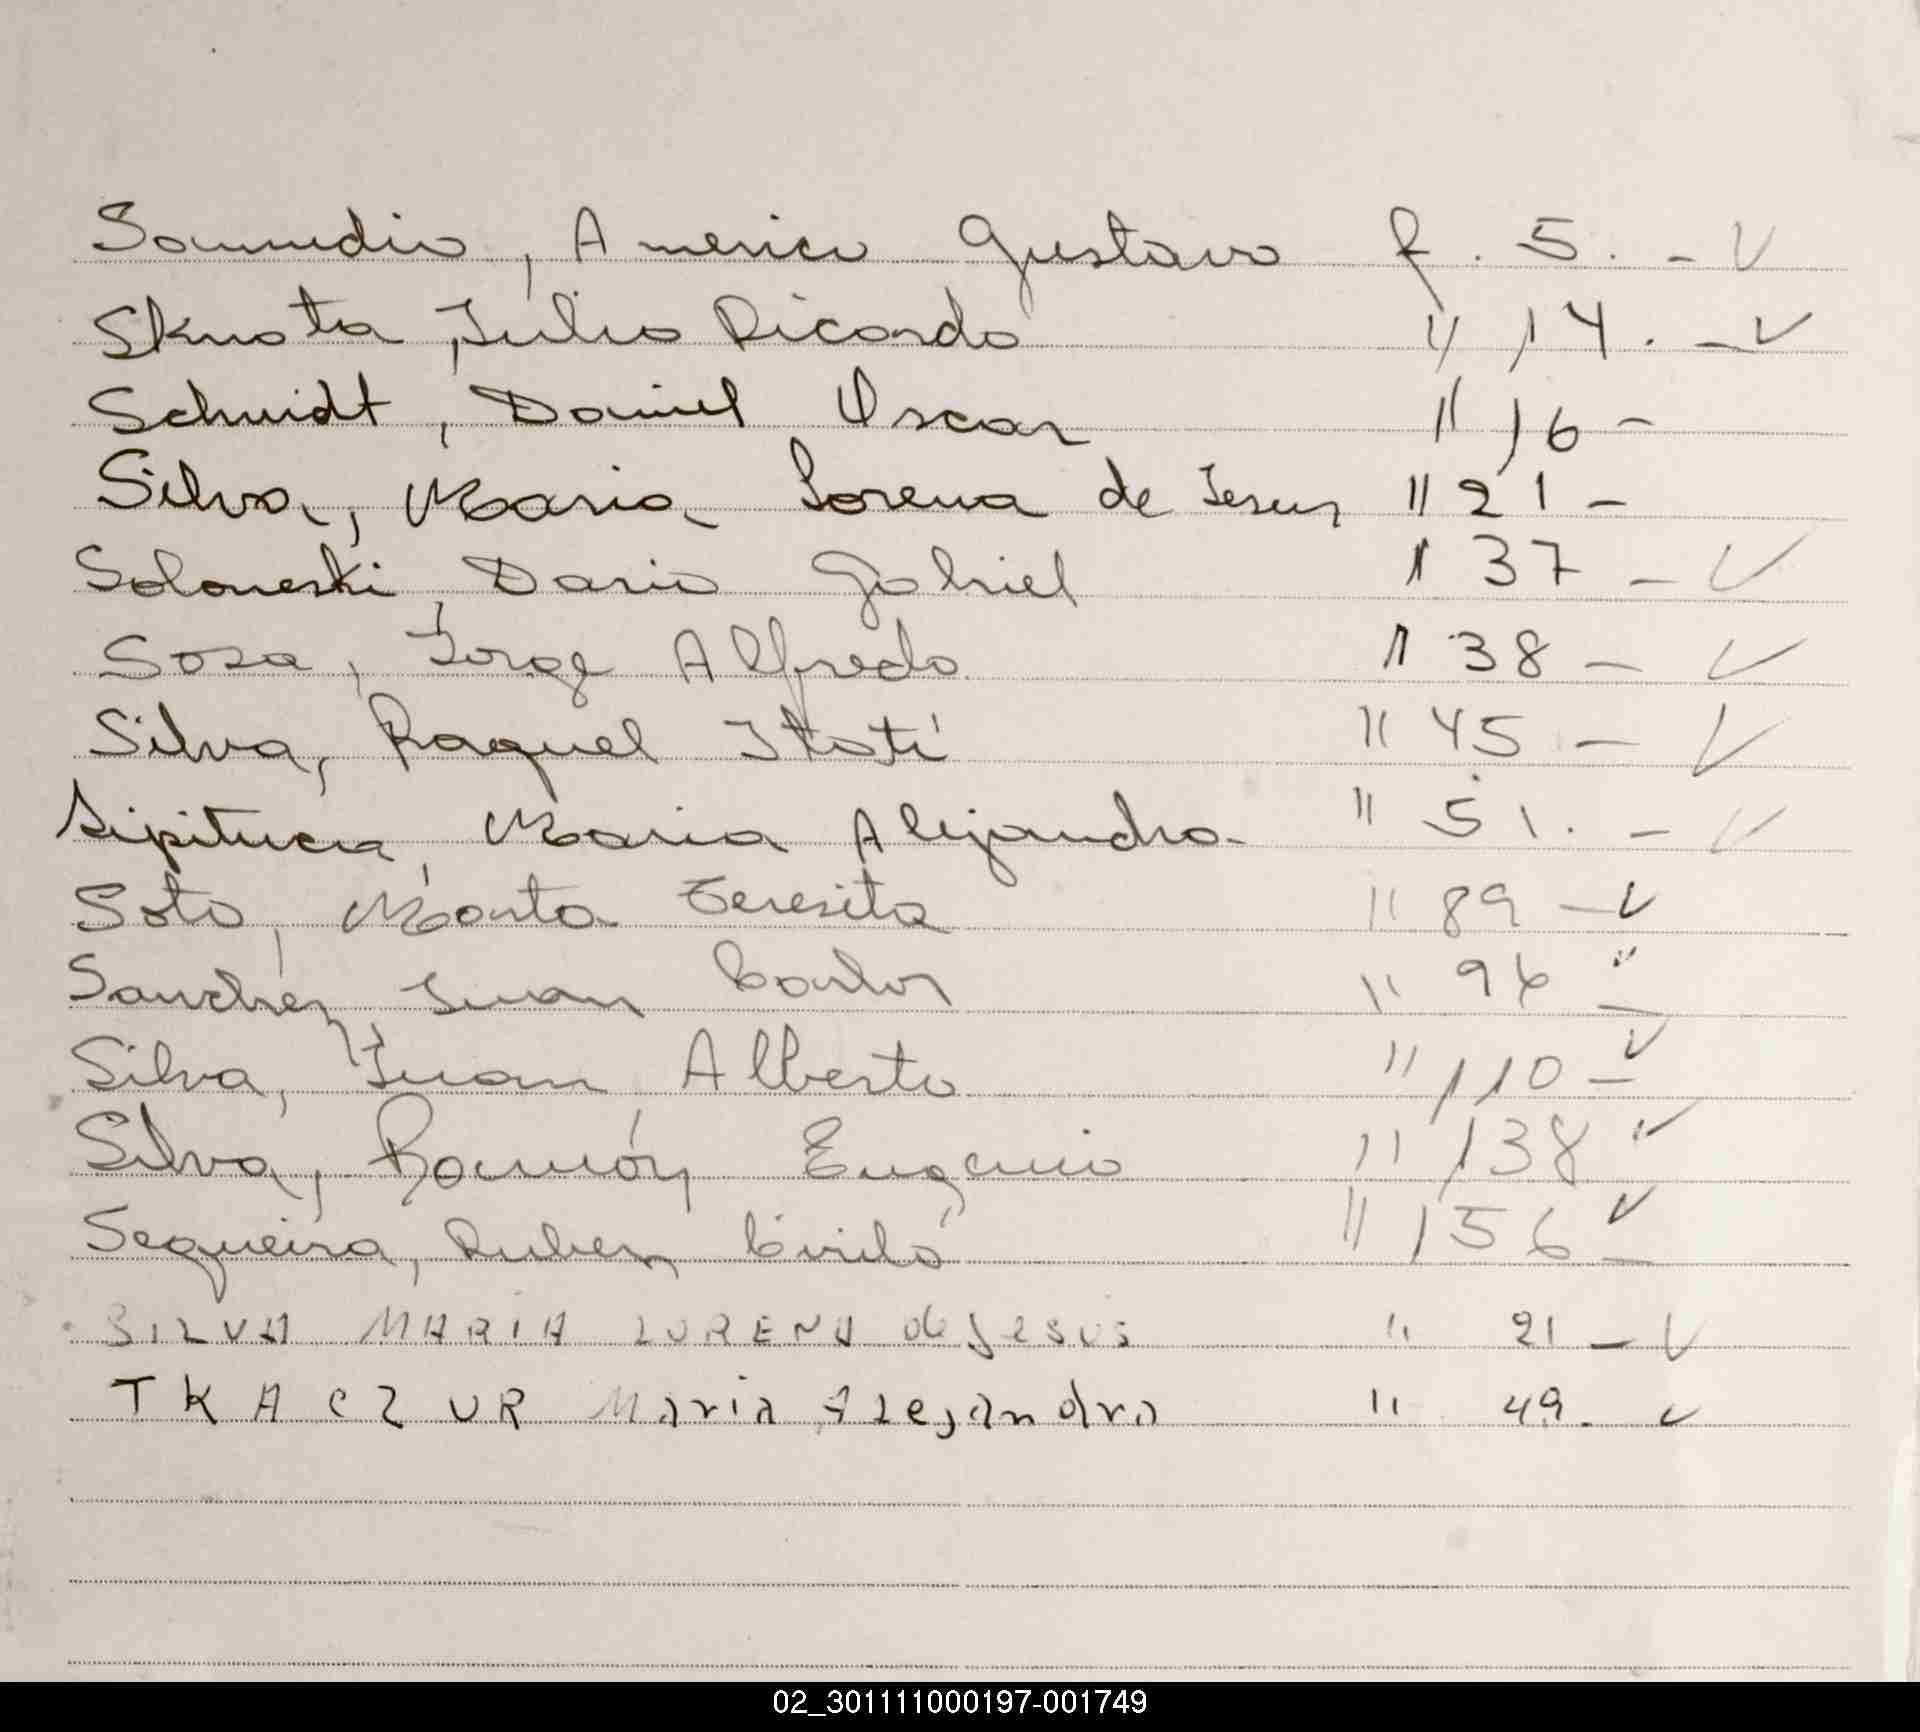 Samudio, Americo Gustavo f. 5. - ✓
Sknota, Julio Ricardo " 14. - ✓
Schmidt, Daniel Oscar " 16 -
Silva, Maria Lorena de Jesus " 21 -
Soloneski, Dario Gabriel " 37 - ✓
Sosa, Jorge Alfredo " 38 - ✓
Silva, Raquel Itatí " 45 - ✓
Maria Alejandra " 51. - ✓
Soto, Marta Teresita " 89 - ✓
Sanchez, Juan Carlos " 96 - ✓
Silva, Juan Alberto " 110 - ✓
Silva, Ramón Eugenio " 138 ✓
Sequeira, Ruben Cirilo " 156 - ✓
SILVA MARIA LORENA de Jesus " 21 - ✓
TKACZUR Maria Alejandra " 49. ✓
02_301111000197-001749